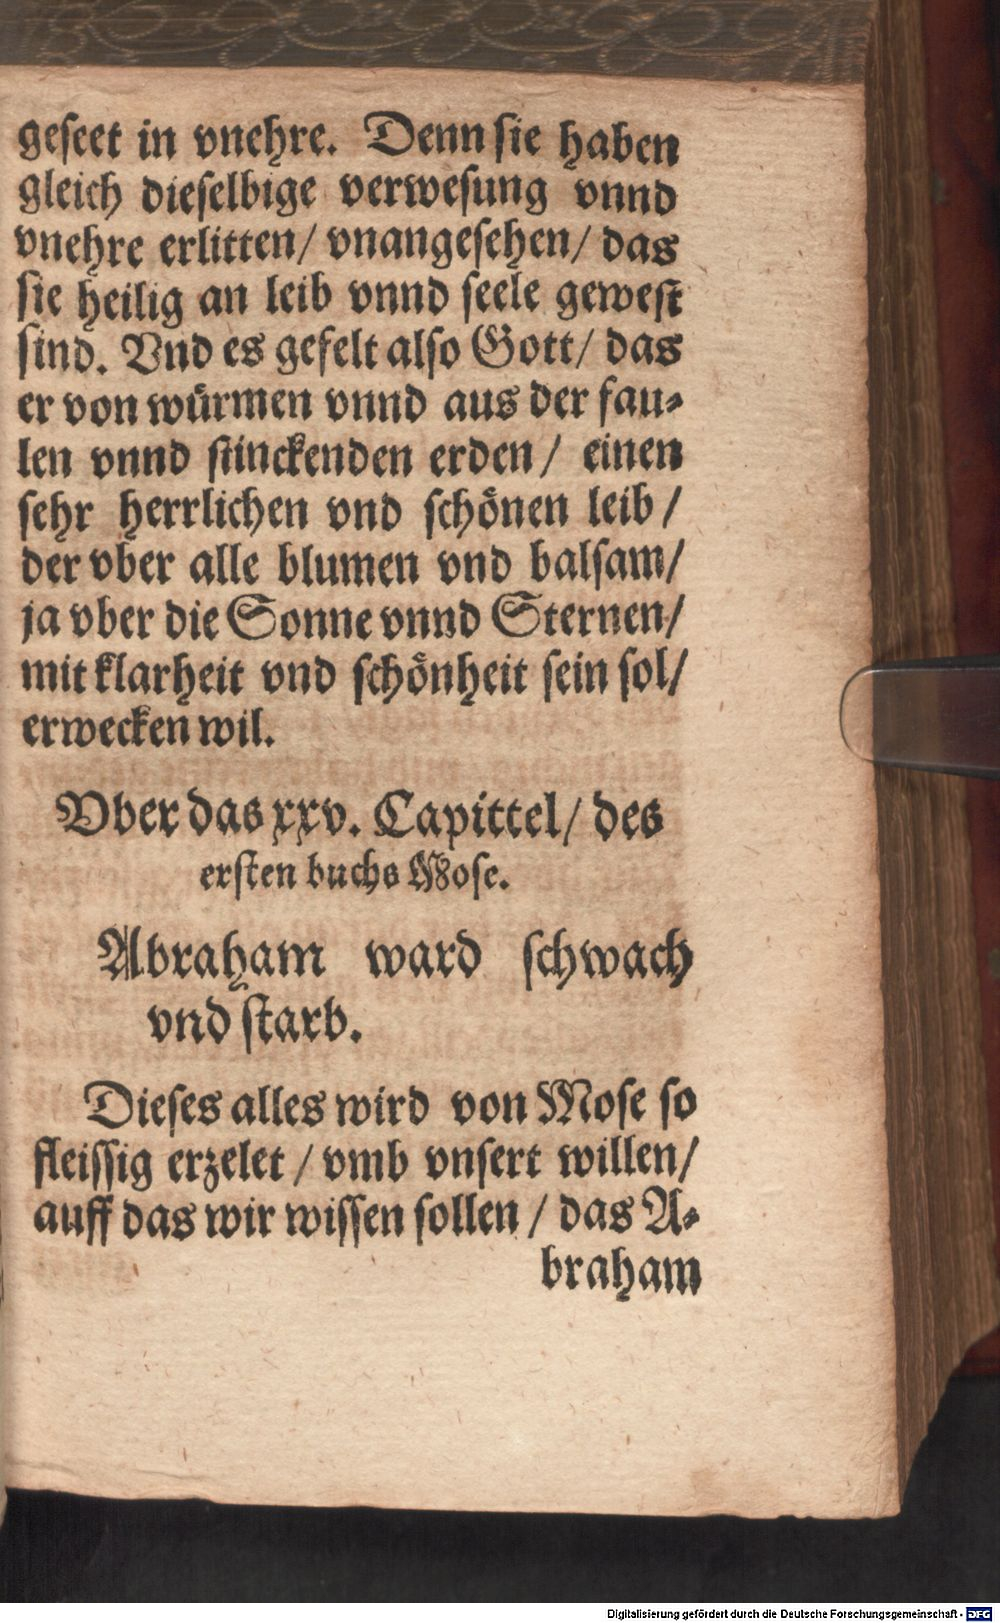 geseet in vnehre. Denn sie haben
gleich dieselbige verwesung vnnd
vnehre erlitten/ vnangesehen/ das
sie heilig an leib vnnd seele gewest
sind. Vnd es gefelt also Gott/ das
er von würmen vnnd aus der fau-
len vnnd stinckenden erden/ einen
sehr herrlichen vnd schönen leib/
der vber alle blumen vnd balsam/
ja vber die Sonne vnnd Sternen/
mit klarheit vnd schönheit sein sol/
erwecken wil.
Vber das xxv. Capittel/ des
ersten buchs Mose.
Abraham ward schwach
vnd starb.
Dieses alles wird von Mose so
fleissig erzelet / vmb vnsert willen/
auff das wir wissen sollen / das A-
braham
Digitalisierung gefördert durch die Deutsche Forschungsgemeinschaft - DFG